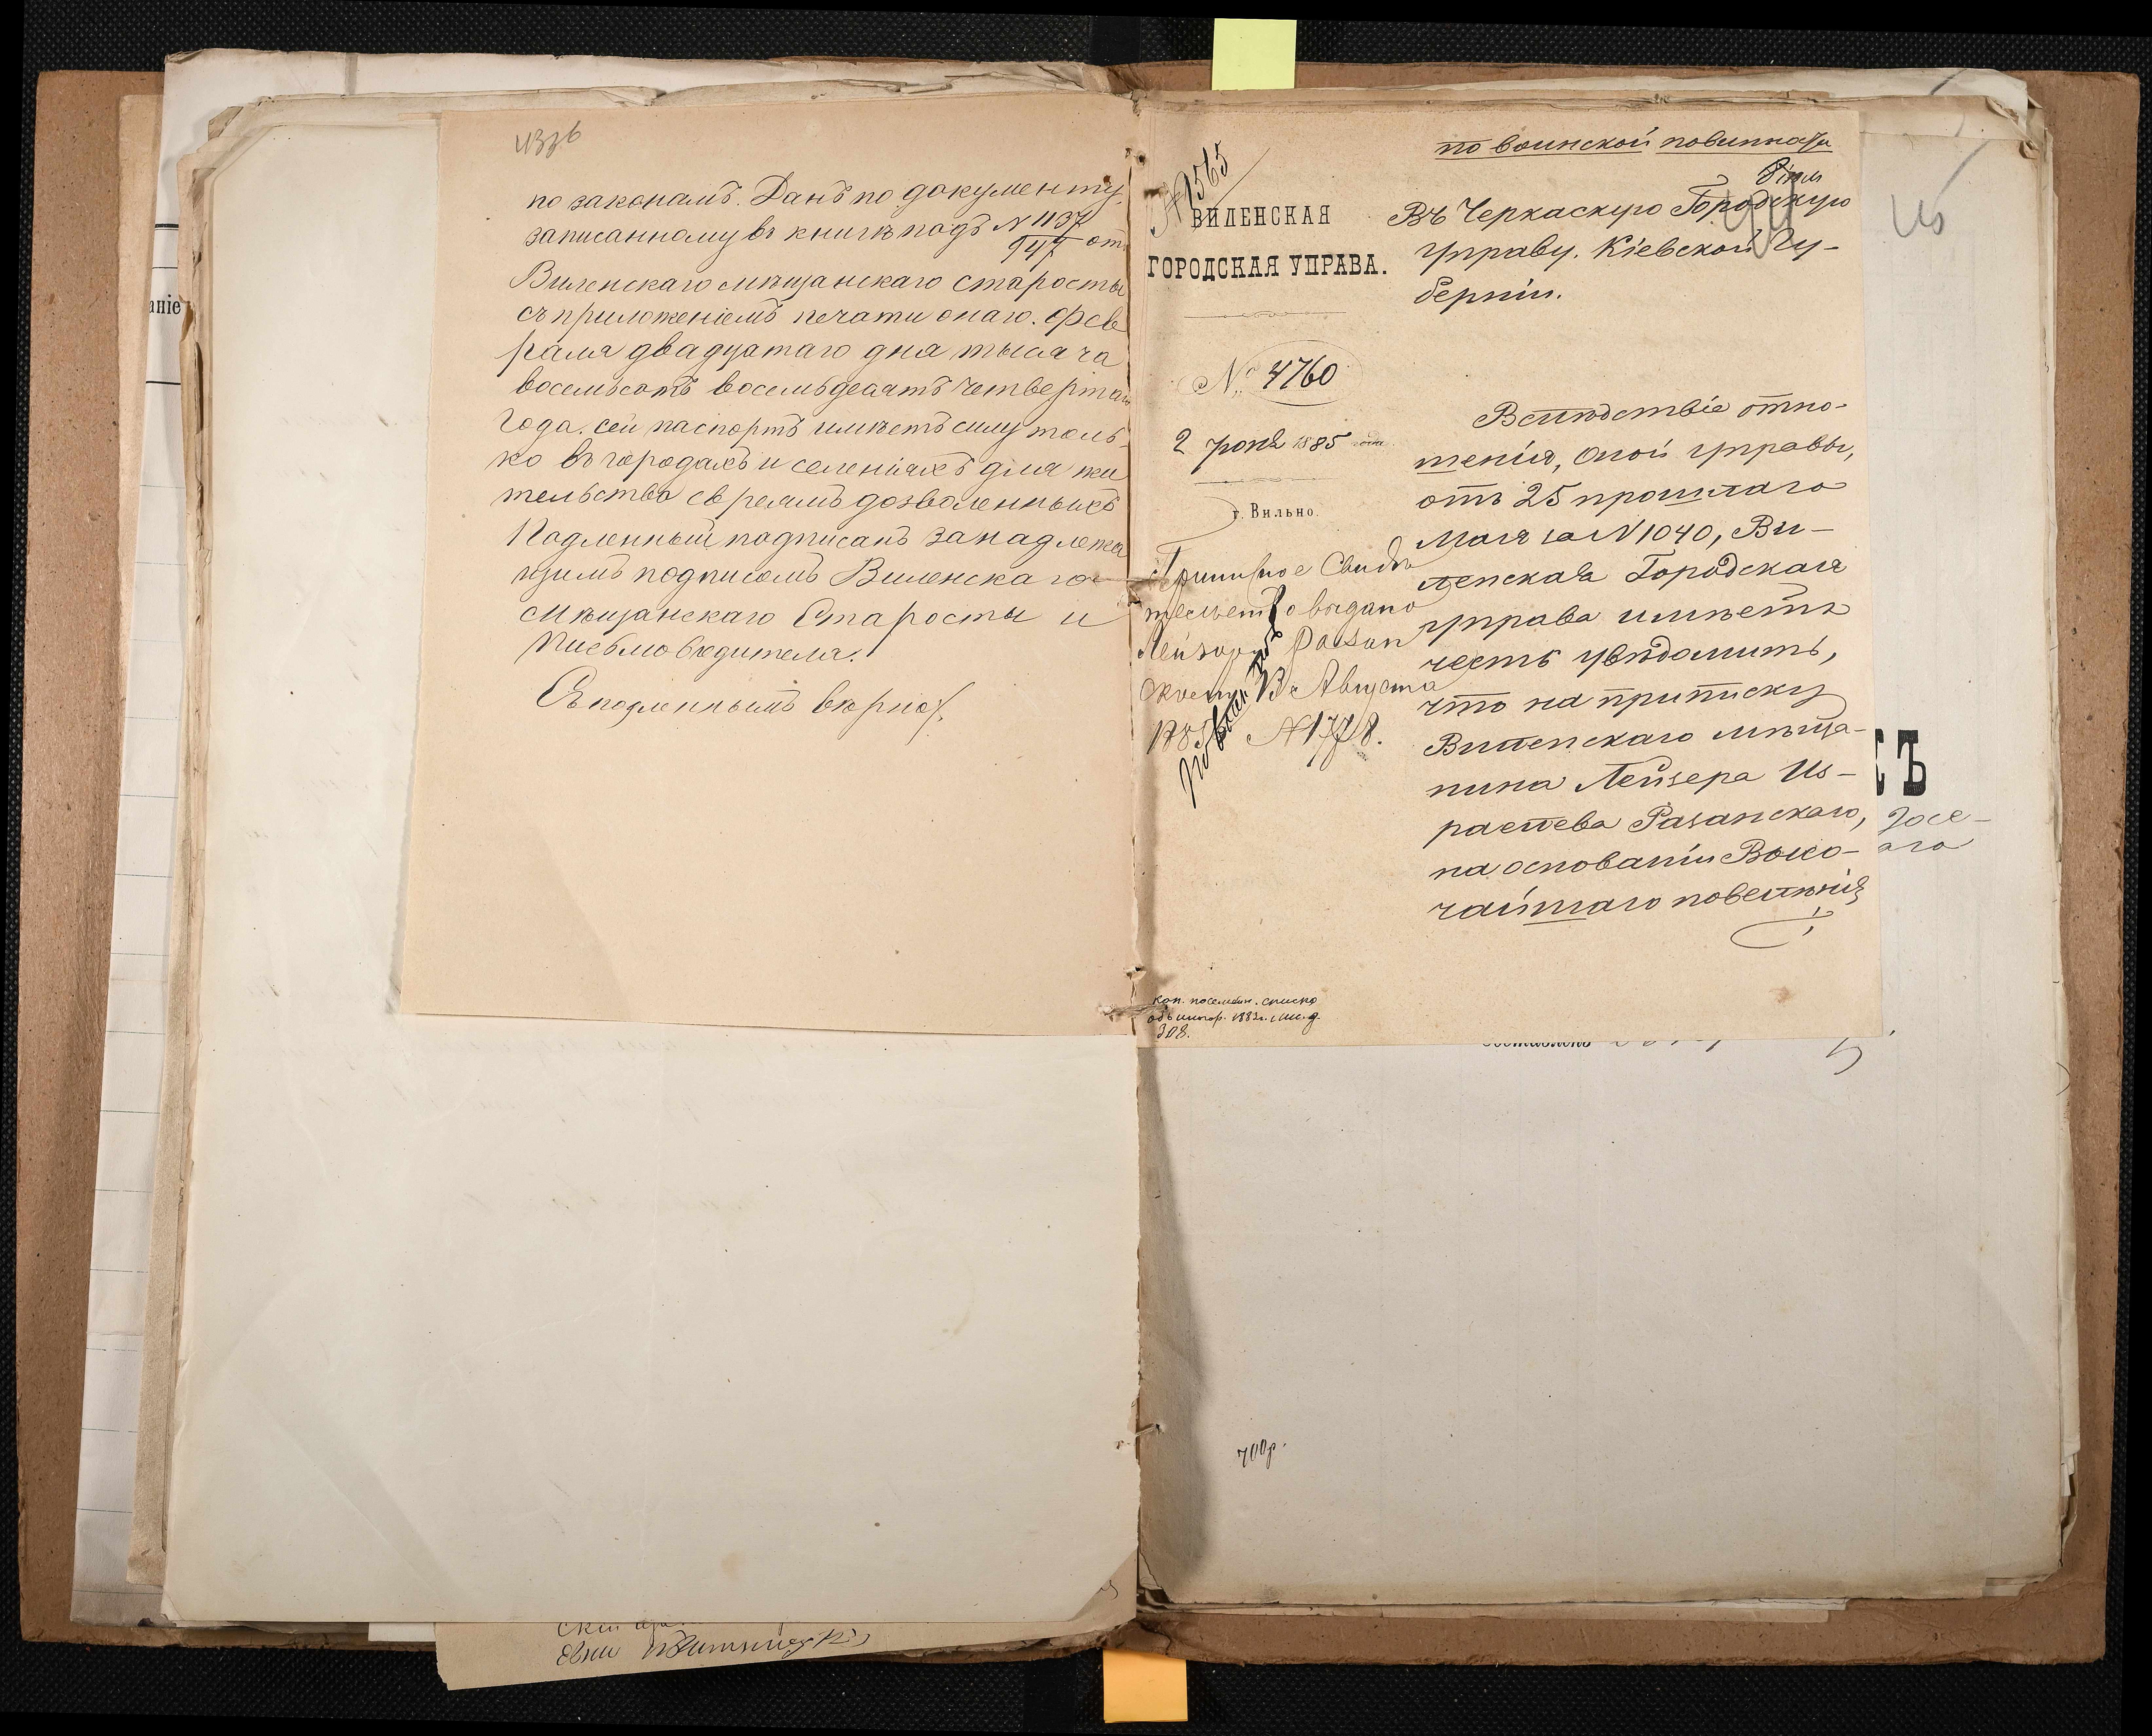 по законамъ. Данъ по документу
записанному въ книгѣ подъ N 1137
947 отъ
Виленскаго мѣщанскаго старосты
съ приложеніемъ печати онаго. Фев
раля двадцатаго дня тысяча
восемьсотъ восемьдесятъ четвертаго
года. сей паспортъ имѣетъ силу толь-
ко въ городахъ и селеніяхъ для жи
тельства евреямъ дозволенныхъ
Подленный подписанъ за надлежа
щимъ подписомъ Виленскаго
мѣщанскаго Старосты и
Письмоводителя.
Съ подленнымъ вѣрно:
аніе
по воинской повинности
№ 1565
ВИЛЕНСКАЯ
ГОРОДСКАЯ УПРАВА.
№ 4760
2 Іюня 1885 года.
г. Вильно.
Приписное Свидѣ
тельство выдано
Лейзору Разан
скому 13 Августа
1885 N 1778.
кон. посемейн. списка
308.
Въ Черкаскую Городскую
Управу. Кіевской Гу-
берніи.
Вслѣдствіе отно-
шенія, оной Управы,
отъ 25 прошлаго
Мая за N 1040, Ви-
ленская Городская
Управа имѣетъ
честь увѣдомить,
что на приписку
Виленскаго мѣща-
нина Лейзера Из-
раелева Разанскаго,
на основаніи Высо-
чайшаго повелѣнія
Ъ
700р.